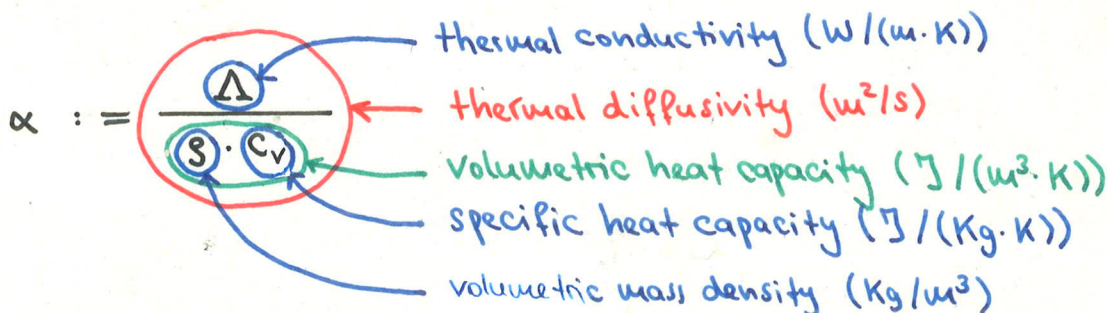 thermal conductivity (W/(m·K))
α := Λ / ρ · Cv
thermal diffusivity (m²/s)
volumetric heat capacity (J/(m³·K))
specific heat capacity (J/(Kg·K))
volumetric mass density (Kg/m³)